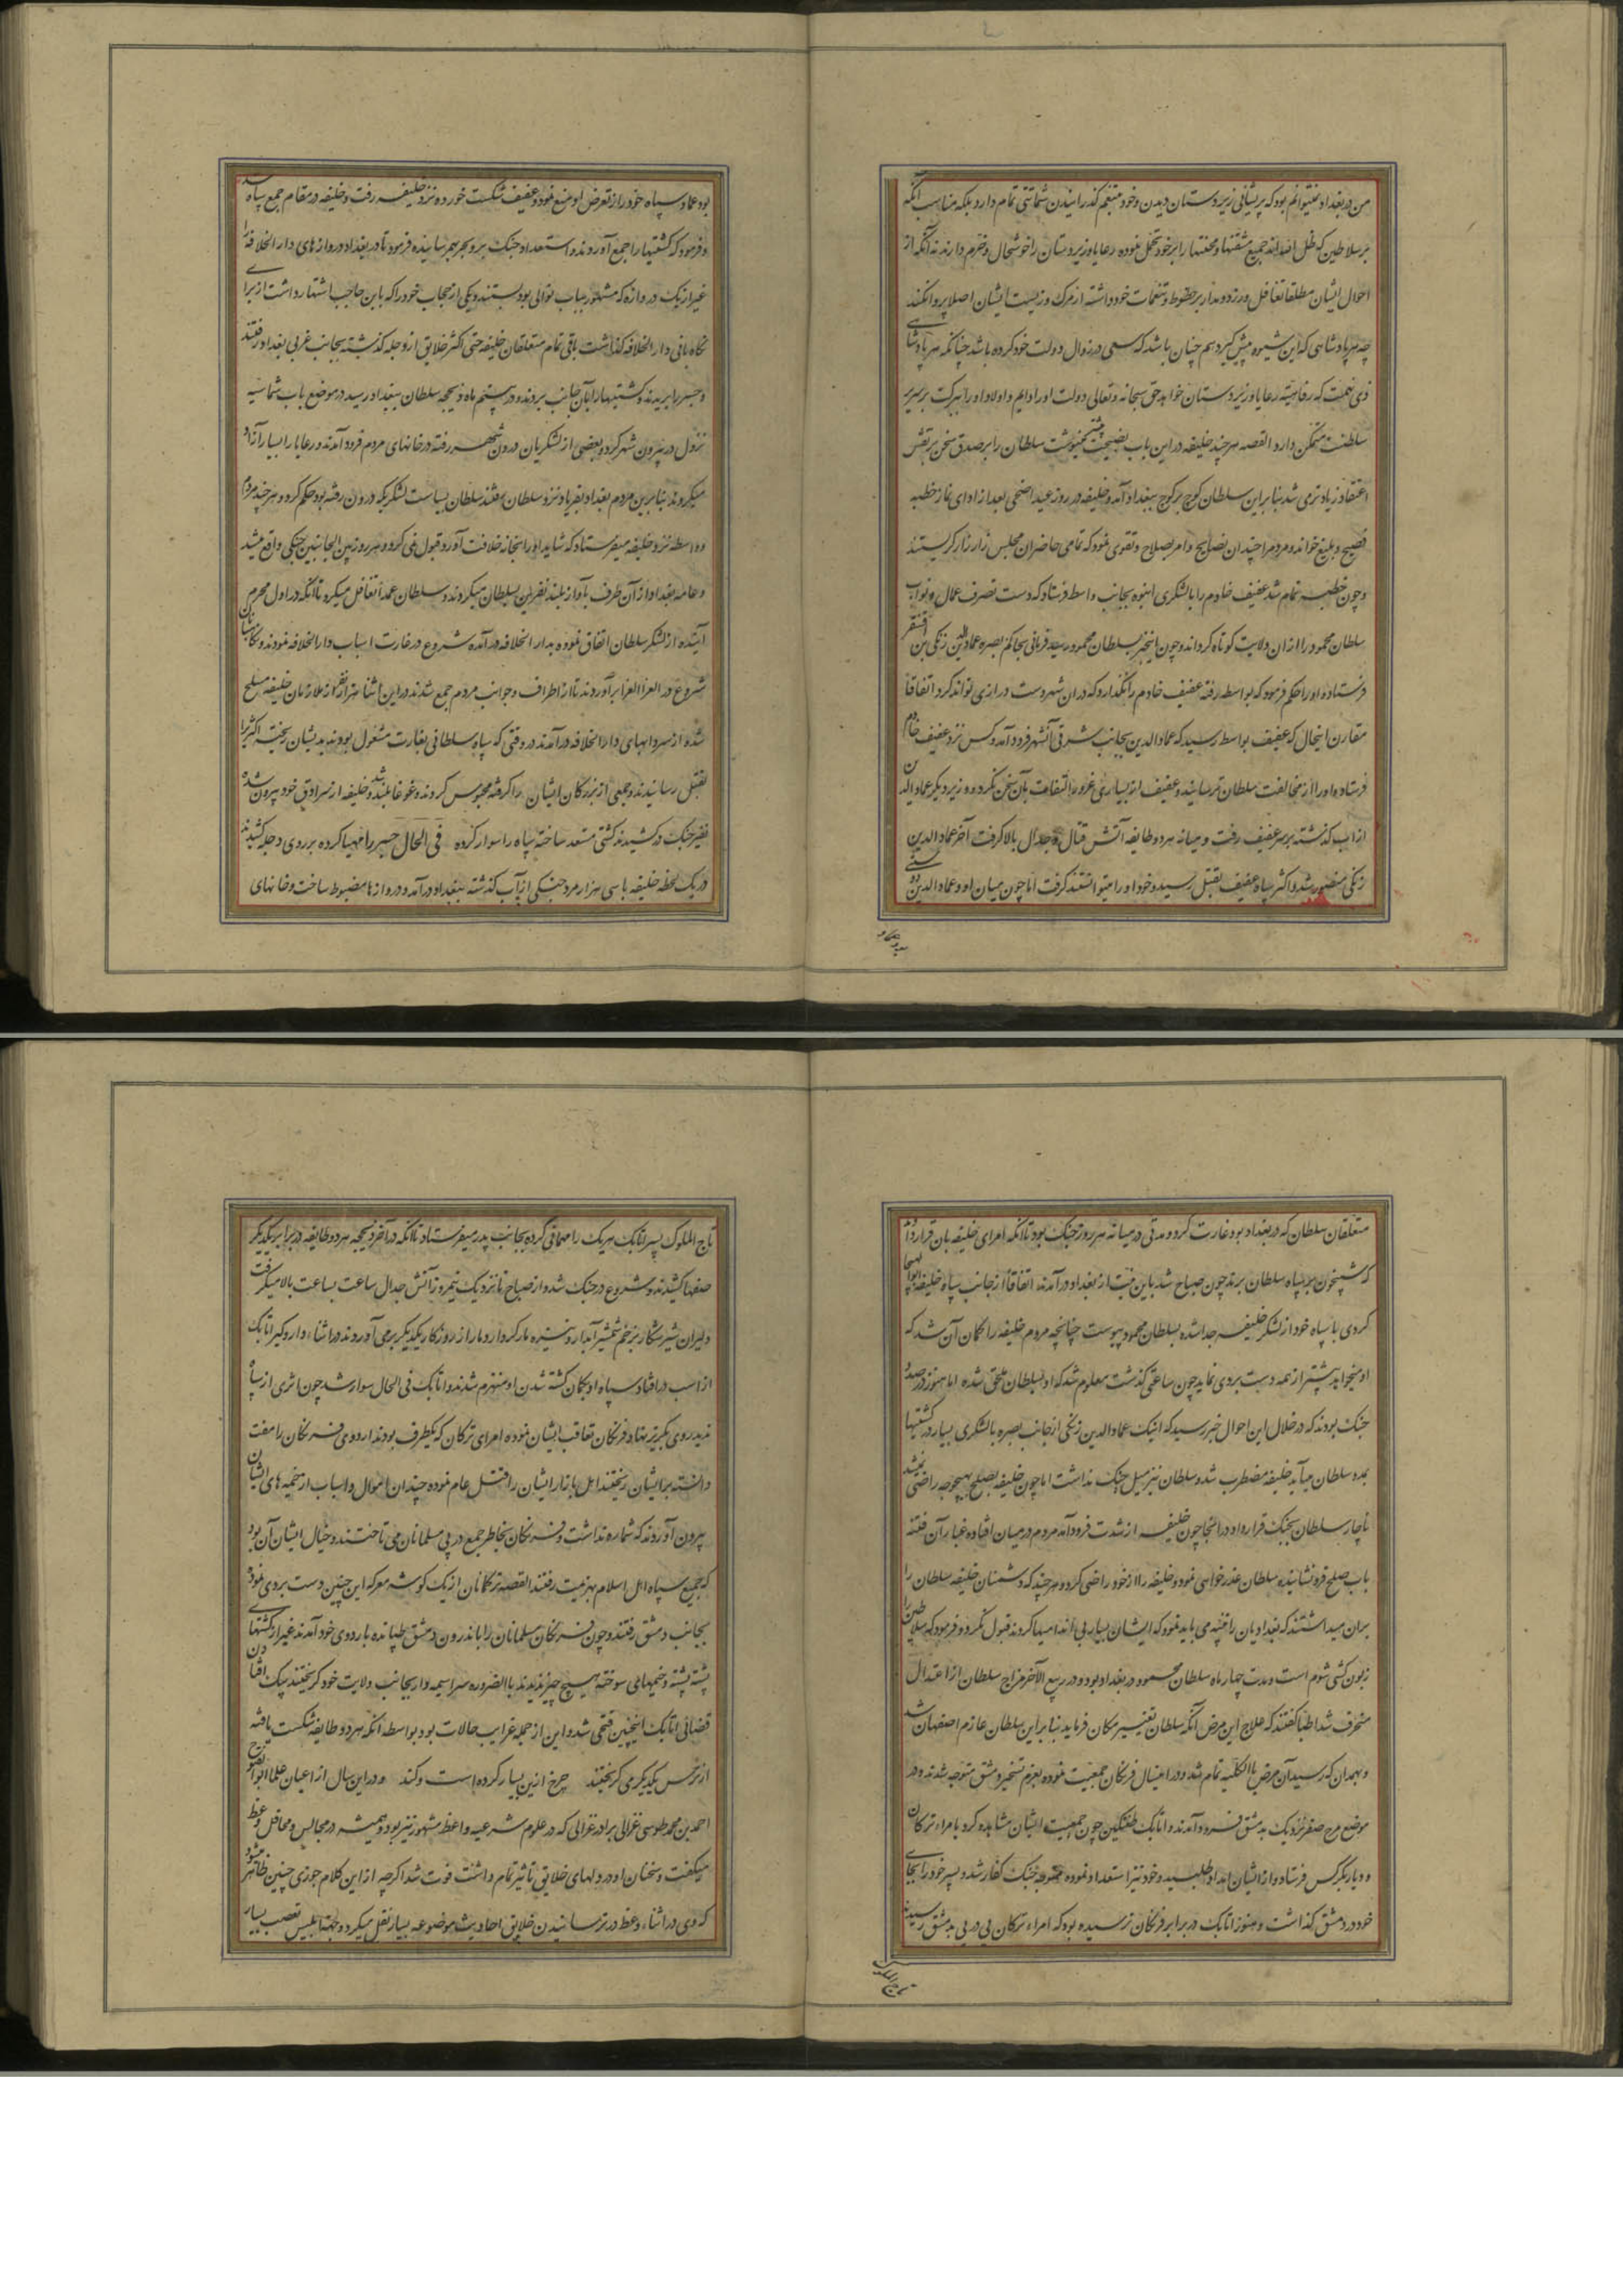 من در بغداد نمیتوانم بود که پریشانی زیردستان دیدن و خود متنعم گذرانیدن شماتتی تمام دارد بلکه مناسب آنکه
بر سلاطین که ظل الله اند جمیع مشقتها و محنتها را بر خود تحمل نموده رعایا و زیردستان را خوشحال و خرم دارند نه آنکه از
احوال ایشان مطلقا تغافل ورزد و مدار بر حظوظ و تنعمات خود داشته از مرک و زیست ایشان اصلا پروا نکند
چه هر پادشاهی که این شیوه پیش گیرد هم چنان باشد که سعی در زوال دولت خود کرده باشد چنانکه هر پادشاهی
ذی نعمت که رفاهیت رعایا و زیردستان خواهد حق سبحانه و تعالی دولت او را دایم و اولاد او را ببرکت بر سریر
سلطنت متمکن دارد القصه هر چند خلیفه در این باب نصیحت بیشتر مینوشت سلطان را بر صدق سخن یرنقش
اعتقاد زیاده تر می شد بنا بر این سلطان کوچ بر کوچ ببغداد آمد و خلیفه در روز عید اضحی بعد از ادای نماز خطبه
فصیح و بلیغ خواند و مردم را چندان نصایح و امر بصلاح و تقوی نمود که تمامی حاضران مجلس زار زار گریستند
و چون خطبه تمام شد عفیف خادم را با لشکری انبوه بجانب واسط فرستاد که دست تصرف عمال و نواب
سلطان محمود را از ان ولایت کوتاه گرداند و چون اینخبر بسلطان محمود رسید فرمانی بحاکم بصره عماد الدین زنکی بن اقسنقر
فرستاده او را حکم فرمود که بواسط رفته عفیف خادم را نگذارد که در ان شهر دست درازی تواند کرد اتفاقا
مقارن اینحال که عفیف بواسط رسید که عماد الدین بجانب شرقی آنشهر فرود آمد و کس نزد عفیف خادم
فرستاده او را از مخالفت سلطان ترسانید و عفیف از بسیاری غرور التفات بآن سخن نکرد و روز دیگر عماد الدین
از اب گذشته بر سر عفیف رفت و میانه هر دو طایفه آتش قتال و جدال بالا گرفت آخر عماد الدین
زنکی منصور شد و اکثر سپاه عفیف بقتل رسید و خود او را میتوانستند گرفت اما چون میان او و عماد الدین دوستی
بود عماد سپاه خود را از تعرض او منع نمود و عفیف شکست خورده نزد خلیفه رفت و خلیفه در مقام جمع سپاه شد
و فرمود که کشتیها را جمع آوردند و استعداد جنک بر و بحر بهم رسانیده فرمود تا در بغداد دروازهای دار الخلافه را
غیر از یک دروازه که مشهور بباب نوالی بود بستند و یکی از حجاب خود را که باین حاجب اشتهار داشت از برای
نگاه بانی دار الخلافه گذاشت باقی تمام متعلقان خلیفه حتی اکثر خلایق از دجله گذشته بجانب غربی بغداد رفتند
و جسر را بریدند و کشتیها را بآن جانب بردند و در بیستم ماه ذیحجه سلطان ببغداد رسید در موضع باب شماسیه
نزول در بیرون شهر کرد و بعضی از لشکریان درون شهر رفته در خانهای مردم فرود آمدند و رعایا را بسیار آزار
میکردند بنا برین مردم بغداد بفریاد نزد سلطان رفتند سلطان بسیاست لشکریکه درون رفته بود حکم کرد و هر چند مردم
واسطه نزد خلیفه میفرستاد که شاید او را بخانه خلافت آورد قبول نمی کرد و هر روز بین الجانبین جنکی واقع میشد
و عامه بغداد از آن طرف بآواز بلند نفرین بسلطان میکردند و سلطان عمدا تغافل میکرد تا آنکه در اول محرم
آینده از لشکر سلطان اتفاق نموده بدار الخلافه در آمده شروع در غارت اسباب دار الخلافه نمودند و
شروع در العزا العزا برآوردند تا از اطراف و جوانب مردم جمع شدند در این اثنا هزار نفر از ملازمان خلیفه مسلح
شده از سردابهای دار الخلافه در آمدند در وقتی که سپاه سلطانی بغارت مشغول بودند بدیشان ریخته اکثر را
بقتل رسانیدند و جمعی از بزرکان ایشان را گرفته محبوس کردند و غوغا بلند شد و خلیفه از سرادق خود بیرون شده
نفیر جنک در کشیدند کشتی مستعد ساخته سپاه را سوار کرده فی الحال جسر را مهیا کرده بر روی دجله کشیدند
در یک لحظه خلیفه با سی هزار مرد جنکی از آب گذشته ببغداد در آمد و دروازها مضبوط ساخت و خانهای
متعلقان سلطان که در بغداد بود غارت کرد و مدتی در میانه هر روز جنک بود تا آنکه امرای خلیفه بان قرار داد
که شبیخون بر سپاه سلطان برند چون صباح شد باین نیت از بغداد در آمدند اتفاقا از جانب سپاه خلیفه ابو الهیجا
کردی با سپاه خود از لشکر خلیفه جدا شده بسلطان محمود پیوست چنانچه مردم خلیفه را گمان آن شد که
او میخواهد پیشتر از همه دست بردی نماید چون ساعتی گذشت معلوم شد که او بسلطان ملحق شده اما هنوز در صدد
جنک بودند که در خلال این احوال خبر رسید که اینک عماد الدین زنکی از جانب بصره با لشکری بسیار در کشتیها
بمدد سلطان میآید خلیفه مضطرب شد و سلطان نیز میل جنک نداشت اما چون خلیفه بصلح بهیچوجه راضی نمیشد
ناچار سلطان بجنک قرار داد در انجا چون خلیفه از شدت فرود آمد مردم در میان افتاده غبار آن فتنه
باب صلح فرو نشانیده سلطان عذر خواهی نمود و خلیفه را از خود راضی کرد و هر چند که دشمنان خلیفه سلطان را
بران میداشتند که بغدادیان را تنبیه می باید نمود که ایشان بسیار بی اندامیها کردند قبول نکرد و فرمود که سلاطین را
زبون کشی شوم است و مدت چهار ماه سلطان محمود در بغداد بود و در ربیع الآخر مزاج سلطان از اعتدال
منحرف شد اطبا گفتند که علاج این مرض آنکه سلطان تغییر مکان فرماید بنا بر این سلطان عازم اصفهان شد
و بهمدان که رسید آن مرض بالکلیه تمام شد و در اینسال فرنکان جمعیت نموده بعزم تسخیر دمشق متوجه شدند و در
موضع مرج صفر نزدیک بدمشق فرود آمدند و اتابک طغتکین چون جمعیت ایشان مشاهده کرد بامراء ترکمان
و دیاربکر کس فرستاد و از ایشان امداد طلبید و خود نیز استعداد نموده متوجه جنک کفار شد و پسر خود را بجای
خود در دمشق گذاشت و هنوز اتابک در برابر فرنکان نرسیده بود که امراء ترکمان پی در پی بدمشق رسیدند
تاج الملوک پسر اتابک هر یک را مهمانی کرده بجانب پدر میفرستاد تا آنکه در آخر ذیحجه هر دو طایفه در برابر یکدیگر
صفها کشیدند و شروع در جنک شد و از صباح تا نزدیک نیمروز آتش جدال ساعت بساعت بالا میگرفت
دلیران شیر شکار بزخم شمشیر آبدار و نیزه مار کردار دمار از روزگار یکدیگر بر می آوردند در اثناء دار و گیر اتابک
از اسب در افتاد سپاه او بگمان کشته شدن او منهزم شدند و اتابک فی الحال سوار شد چون اثری از سپاه
ندید روی بگریز نهاد و فرنکان تعاقب ایشان نموده امرای ترکان که بیکطرف بودند اردوی فرنکان را مفت
دانسته بر ایشان ریختند اهل بازار ایشان را قتل عام نموده چندان اموال و اسباب از خیمه های ایشان
بیرون آوردند که شماره نداشت و فرنکان بخاطر جمع در پی مسلمانان می تاختند و خیال ایشان آن بود
که جمیع سپاه اهل اسلام بهزیمت رفتند القصه ترکمانان از یک گوشه معرکه این چنین دست بردی نموده
بجانب دمشق رفتند و چون فرنکان مسلمانان را باندرون دمشق طپانده باردوی خود آمدند غیر از کشتهای
پشته پشته و خیمهای سوخته هیچ چیز ندیدند بالضروره سراسیمه وار بجانب ولایت خود گریختند
قضائی اتابک اینچنین فتحی شد و این از جمله غرایب حالات بود بواسطه آنکه هر دو طایفه شکست یافته
از ترس یکدیگر می گریختند چرخ ازین بسیار کرده است و کند و در این سال از اعیان علما ابو الفتوح
احمد بن محمد طوسی غزالی برادر غزالی که در علوم شرعیه و اعظ مشهور نیز بود و همیشه در مجالس و محافل وعظ
میگفت و سخنان او در دلهای خلایق تأثیر تمام داشت فوت شد اگرچه از این کلام جوزی چنین ظاهر میشود
که وی در اثناء وعظ در ترسانیدن خلایق احادیث موضوعه بسیار نقل میکرد و جهة ابلیس تعصب بسیار